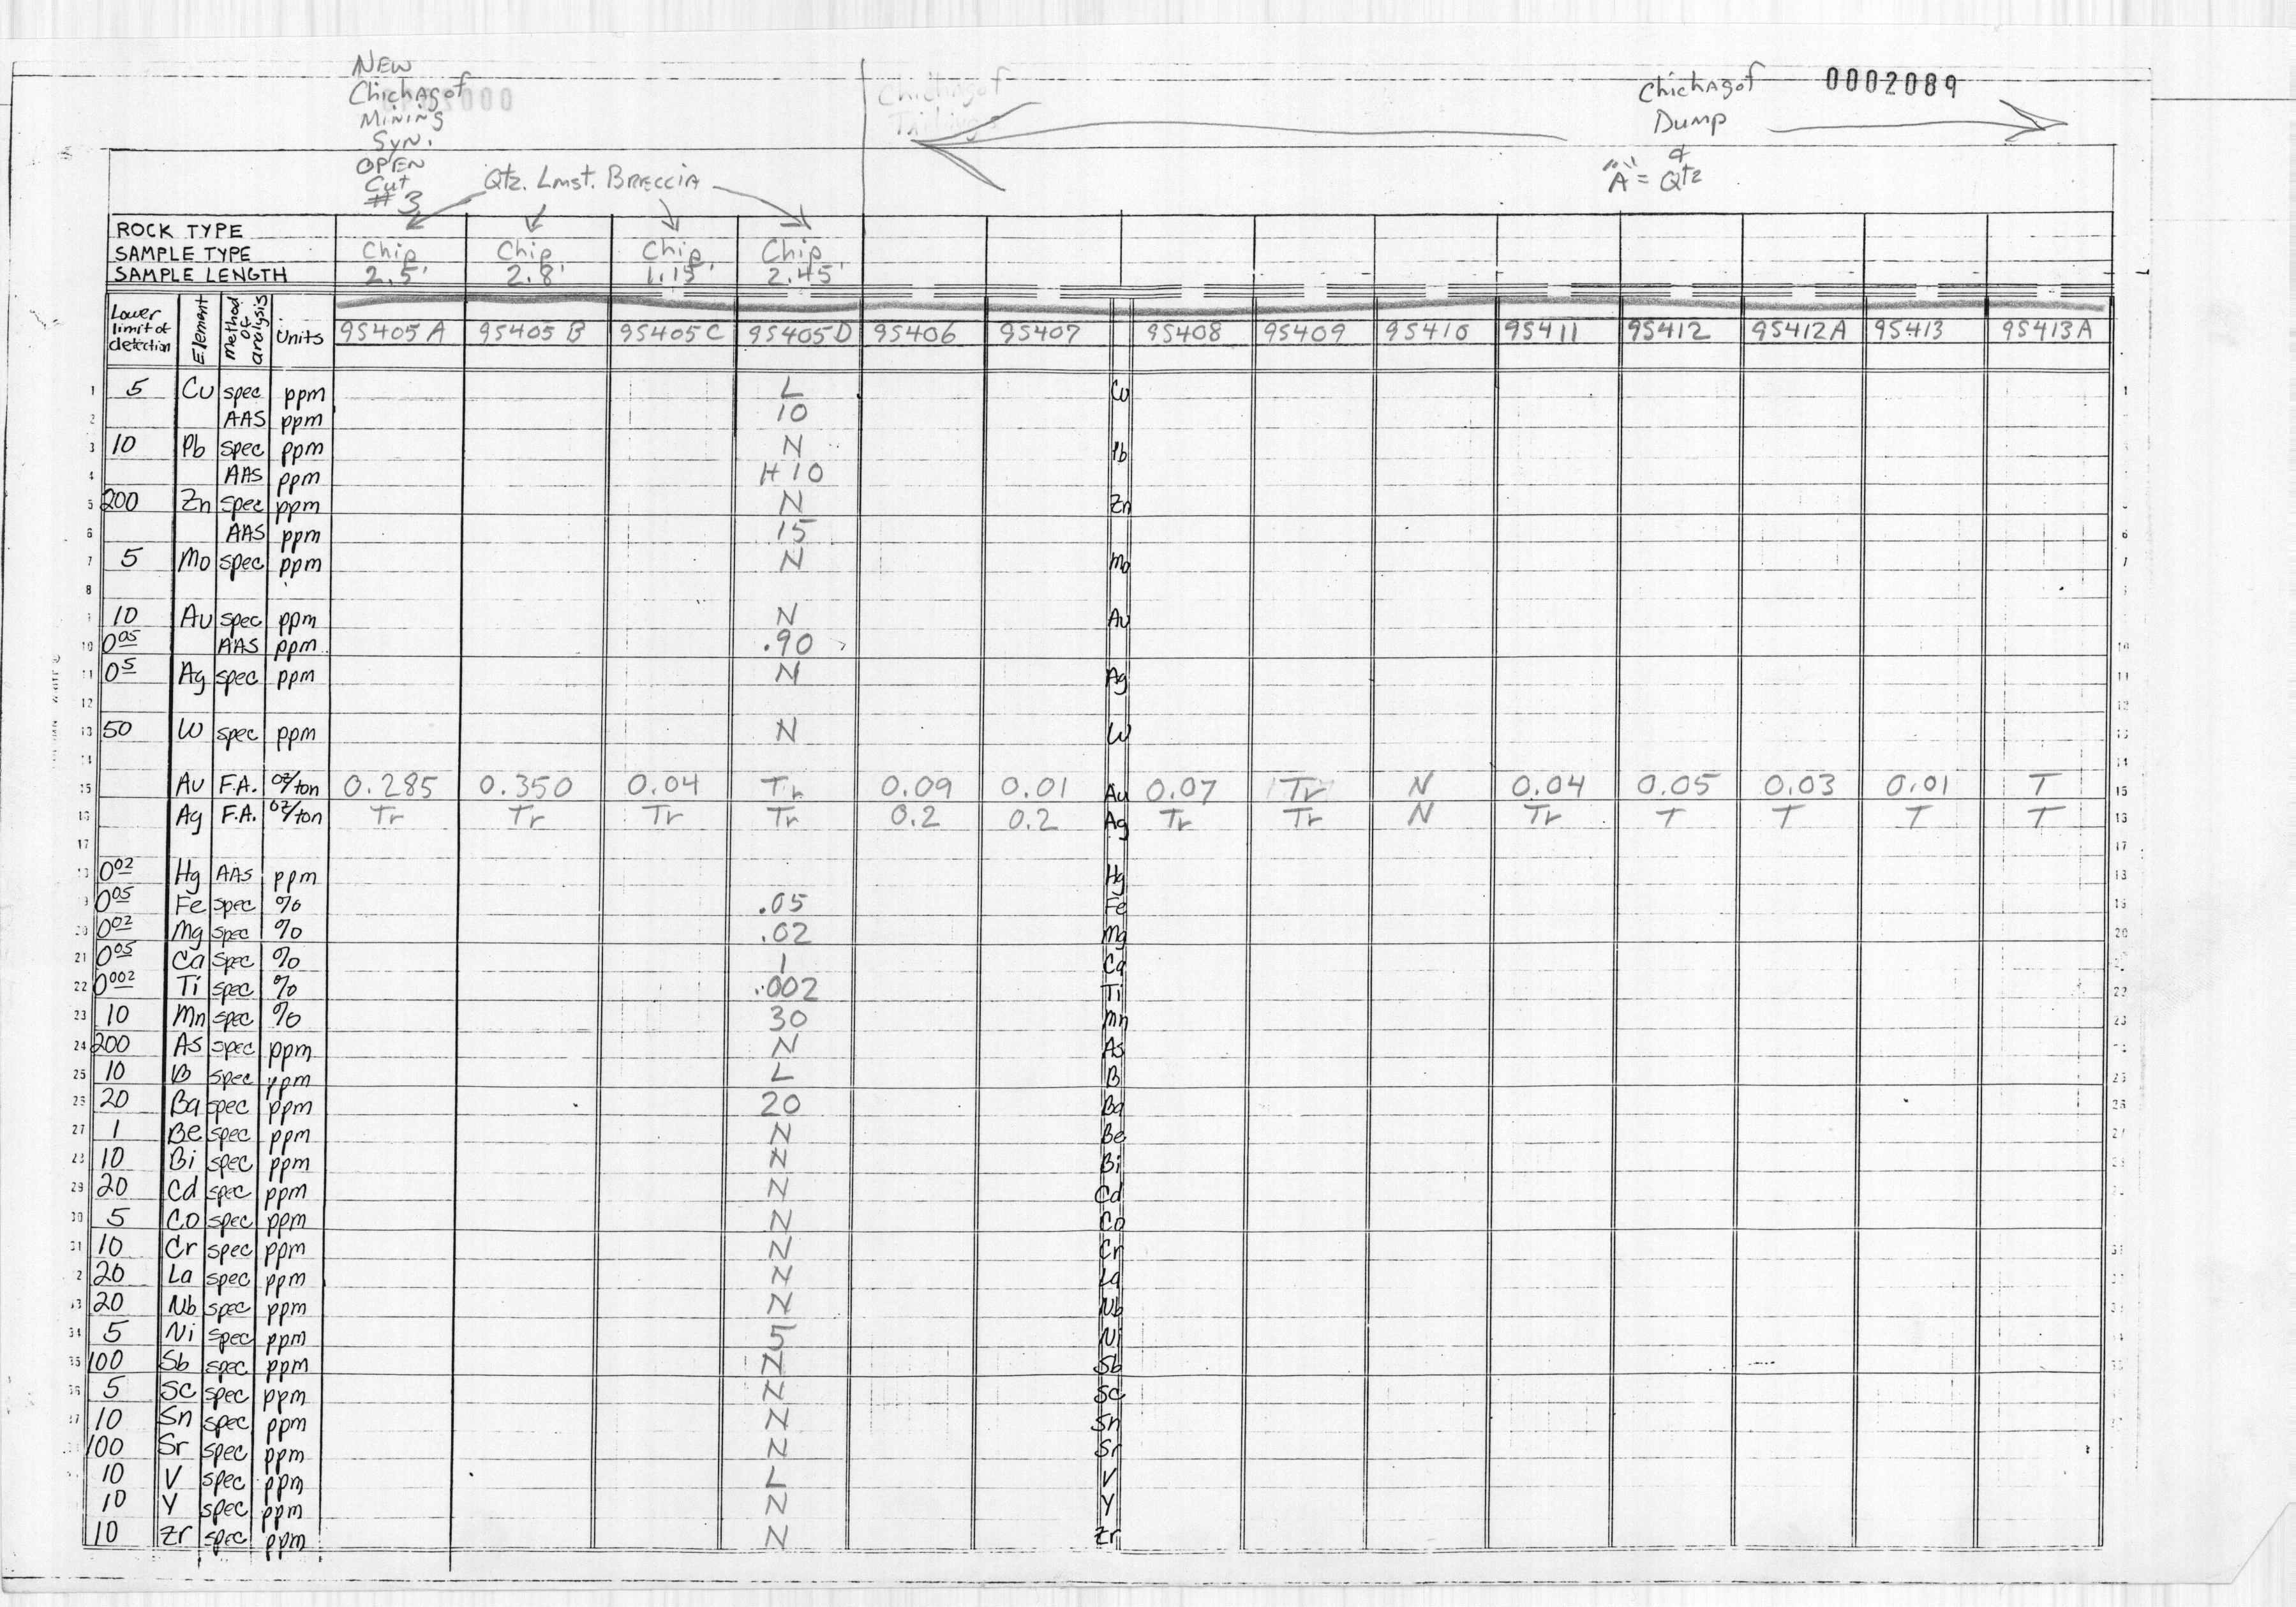 NEW
Chichagof
Mining
Syn.
OPEN
Cut
#3
Qtz. Lmst. Breccia
Chichagof
Tailings
Chichagof
Dump
&
"A" = Qtz
0002089
ROCK TYPE
SAMPLE TYPE Chip Chip Chip Chip
SAMPLE LENGTH 2.5' 2.8' 1.15' 2.45'
Lower limit of detection Element Method of analysis Units 9S405A 9S405B 9S405C 9S405D 9S406 9S407 9S408 9S409 9S410 9S411 9S412 9S412A 9S413 9S413A
1 5 Cu spec ppm L Cu 1
2 AAS ppm 10
3 10 Pb spec ppm N Pb
4 AAS ppm H 10
5 200 Zn spec ppm N Zn
6 AAS ppm 15 6
7 5 Mo spec ppm N Mo 7
8
9 10 Au spec ppm N Au
10 0.05 AAS ppm .90 10
11 0.5 Ag spec ppm N Ag 11
12 12
13 50 W spec ppm N W 13
14 14
15 Au F.A. oz/ton 0.285 0.350 0.04 Tr 0.09 0.01 Au 0.07 Tr N 0.04 0.05 0.03 0.01 T 15
16 Ag F.A. oz/ton Tr Tr Tr Tr 0.2 0.2 Ag Tr Tr N Tr T T T T 16
17 17
18 0.02 Hg AAS ppm Hg 18
9 0.05 Fe spec % .05 Fe 19
20 0.02 Mg spec % .02 Mg 20
21 0.05 Ca spec % 1 Ca 21
22 0.002 Ti spec % .002 Ti 22
23 10 Mn spec % 30 Mn 23
24 200 As spec ppm N As
25 10 B spec ppm L B 25
26 20 Ba spec ppm 20 Ba 26
27 1 Be spec ppm N Be 27
28 10 Bi spec ppm N Bi
29 20 Cd spec ppm N Cd
30 5 Co spec ppm N Co
31 10 Cr spec ppm N Cr
2 20 La spec ppm N La
33 20 Nb spec ppm N Nb
34 5 Ni spec ppm 5 Ni
35 100 Sb spec ppm N Sb
36 5 Sc spec ppm N Sc
37 10 Sn spec ppm N Sn
100 Sr spec ppm N Sr
10 V spec ppm L V
10 Y spec ppm N Y
10 Zr spec ppm N Zr